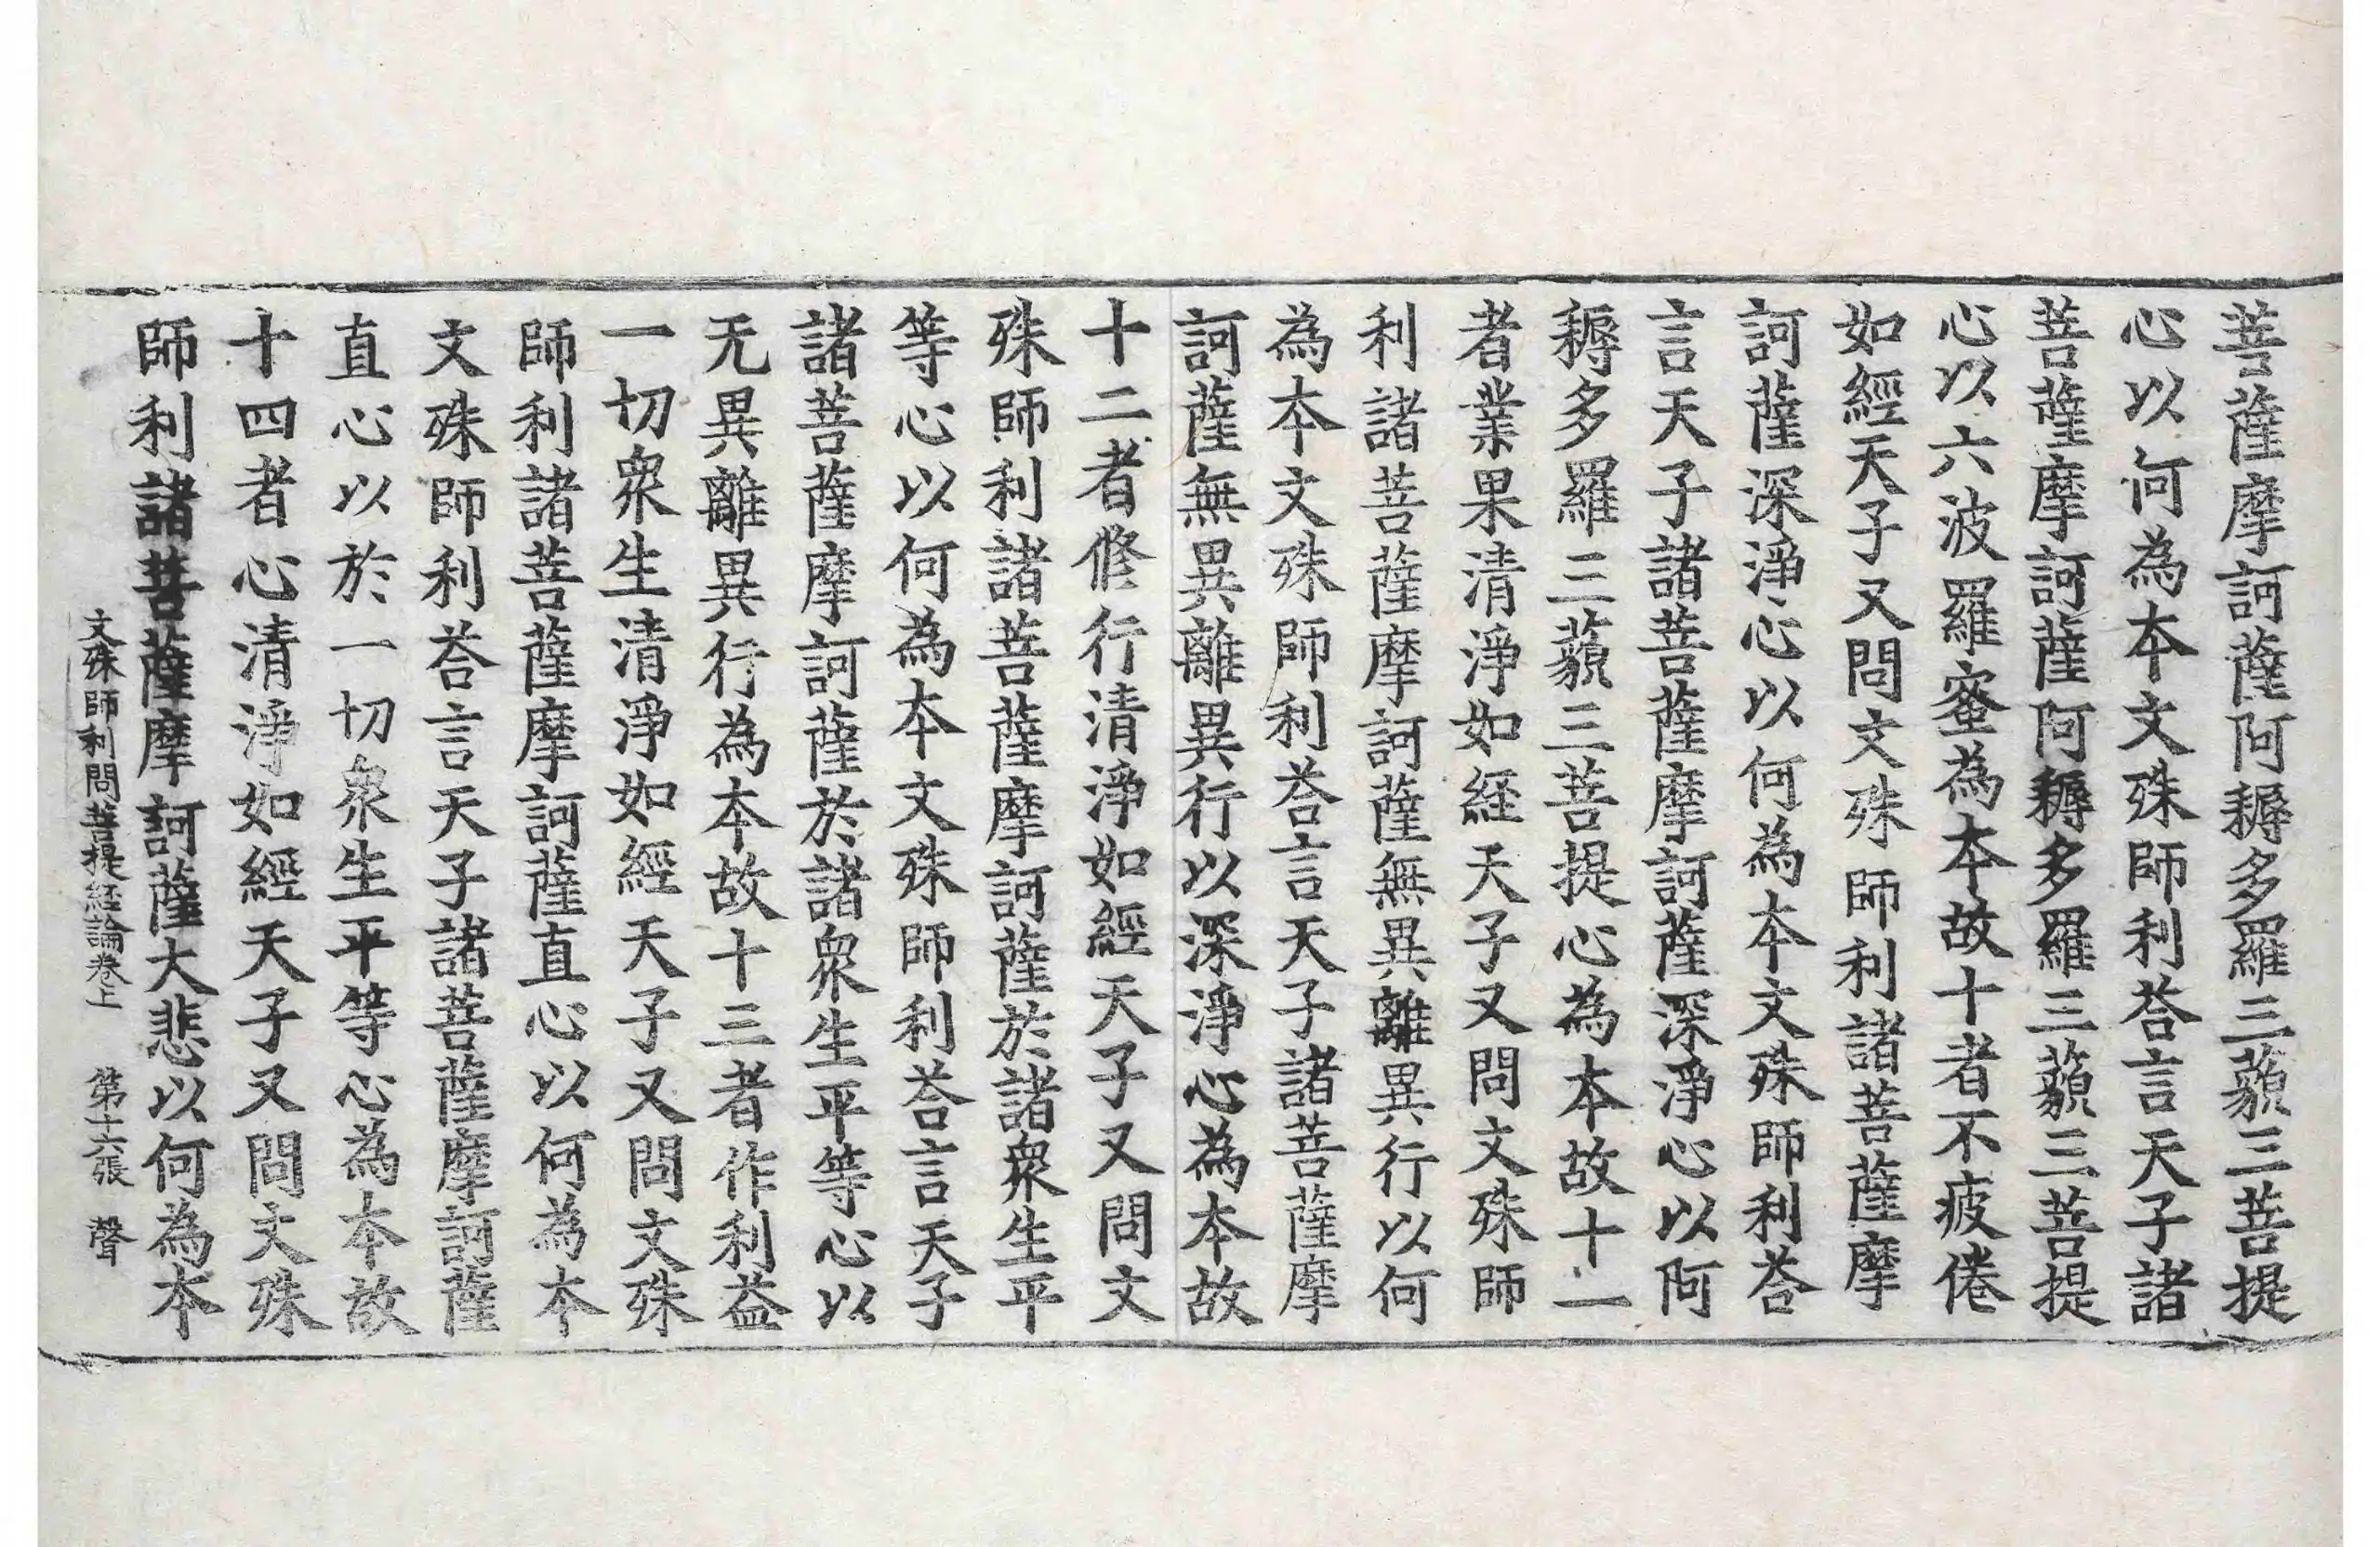 菩薩摩訶薩阿耨多羅三藐三菩提
心以何為本文殊師利荅言天子諸
菩薩摩訶薩阿耨多羅三藐三菩提
心以六波羅蜜為本故十者不疲倦
如經天子又問文殊師利諸菩薩摩
訶薩深淨心以何為本文殊師利荅
言天子諸菩薩摩訶薩深淨心以阿
耨多羅三藐三菩提心為本故十一
者業果清淨如経天子又問文殊師
利諸菩薩摩訶薩無異離異行以何
為本文殊師利荅言天子諸菩薩摩
訶薩無異離異行以深淨心為本故
十二者修行清淨如經天子又問文
殊師利諸菩薩摩訶薩於諸衆生平
等心以何為本文殊師利荅言天子
諸菩薩摩訶薩於諸衆生平等心以
无異離異行為本故十三者作利益
一切衆生清淨如經天子又問文殊
師利諸菩薩摩訶薩直心以何為本
文殊師利荅言天子諸菩薩摩訶薩
直心以於一切衆生平等心為本故
十四者心清淨如經天子又問文殊
師利諸菩薩摩訶薩大悲以何為本
文殊師利問菩提経論卷上 第十六張 聲